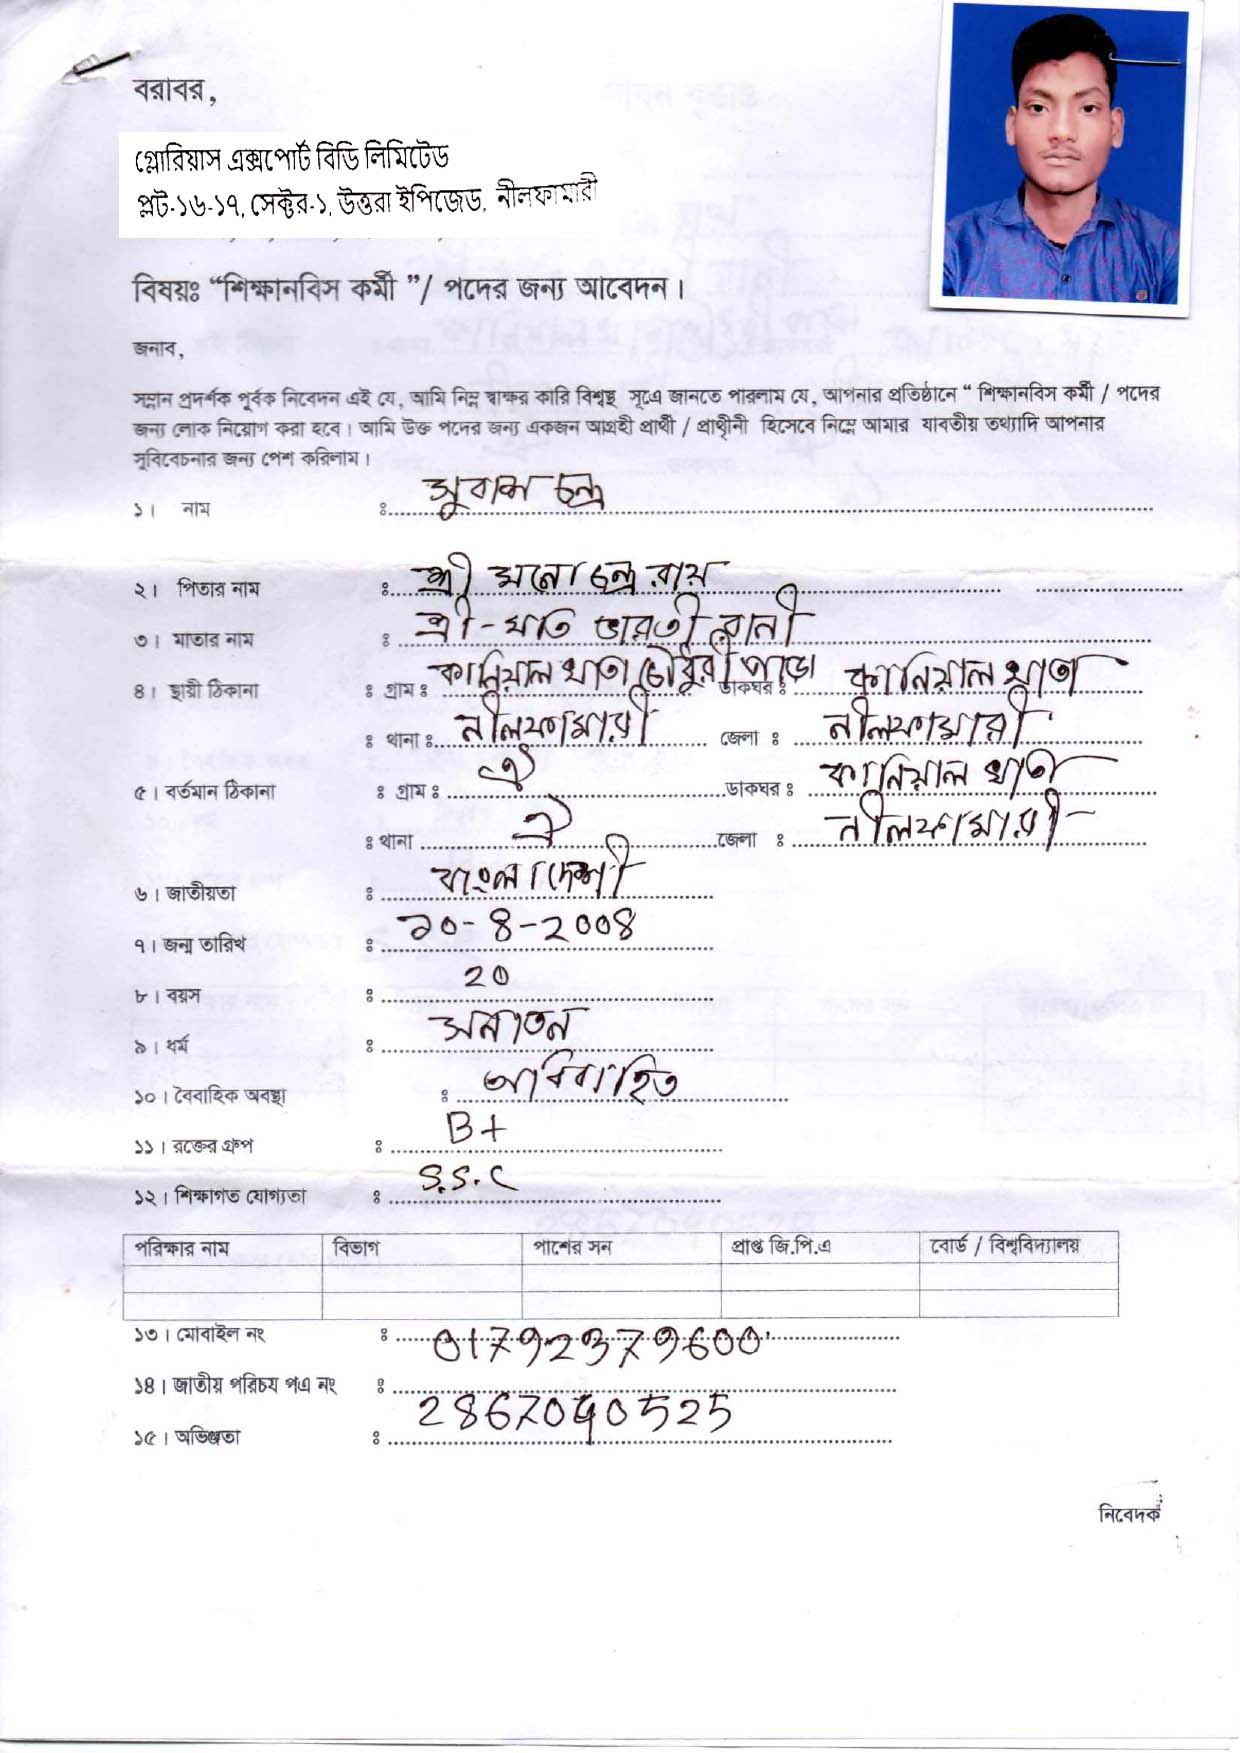 বরাবর,
গ্লোরিয়াস এক্সপোর্ট বিডি লিমিটেড
প্লট-১৬-১৭, সেক্টর-১, উত্তরা ইপিজেড, নীলফামারী
বিষয়ঃ “শিক্ষানবিস কর্মী ”/ পদের জন্য আবেদন।
জনাব,
সম্মান প্রদর্শক পূর্বক নিবেদন এই যে, আমি নিম্ন স্বাক্ষর কারি বিশ্বস্থ সূএে জানতে পারলাম যে, আপনার প্রতিষ্ঠানে “ শিক্ষানবিস কর্মী / পদের
জন্য লোক নিয়োগ করা হবে। আমি উক্ত পদের জন্য একজন আগ্রহী প্রার্থী / প্রার্থীনী হিসেবে নিম্নে আমার যাবতীয় তথ্যাদি আপনার
সুবিবেচনার জন্য পেশ করিলাম।
১। নাম ঃ সুবাস চন্দ্র
২। পিতার নাম ঃ শ্রী মনো চন্দ্র রায়
৩। মাতার নাম ঃ শ্রী-মতি ভারতী রানী
৪। স্থায়ী ঠিকানা ঃ গ্রাম ঃ কানিয়াল খাতা চৌধুরী পাড়া ডাকঘর ঃ কানিয়াল খাতা
ঃ থানা ঃ নীলফামারী জেলা ঃ নীলফামারী
৫। বর্তমান ঠিকানা ঃ গ্রাম ঃ ঐ ডাকঘর ঃ কানিয়াল খাতা
ঃ থানা ঐ জেলা ঃ নীলফামারী
৬। জাতীয়তা ঃ বাংলাদেশী
৭। জন্ম তারিখ ঃ ১০-8-2008
৮। বয়স ঃ 20
৯। ধর্ম ঃ সনাতন
১০। বৈবাহিক অবস্থা ঃ অবিবাহিত
১১। রক্তের গ্রুপ ঃ B+
১২। শিক্ষাগত যোগ্যতা ঃ S.S.C
পরিক্ষার নাম বিভাগ পাশের সন প্রাপ্ত জি.পি.এ বোর্ড / বিশ্ববিদ্যালয়
১৩। মোবাইল নং ঃ 01792379600
১৪। জাতীয় পরিচয় পএ নং ঃ
2867090525
১৫। অভিজ্ঞতা ঃ
নিবেদক